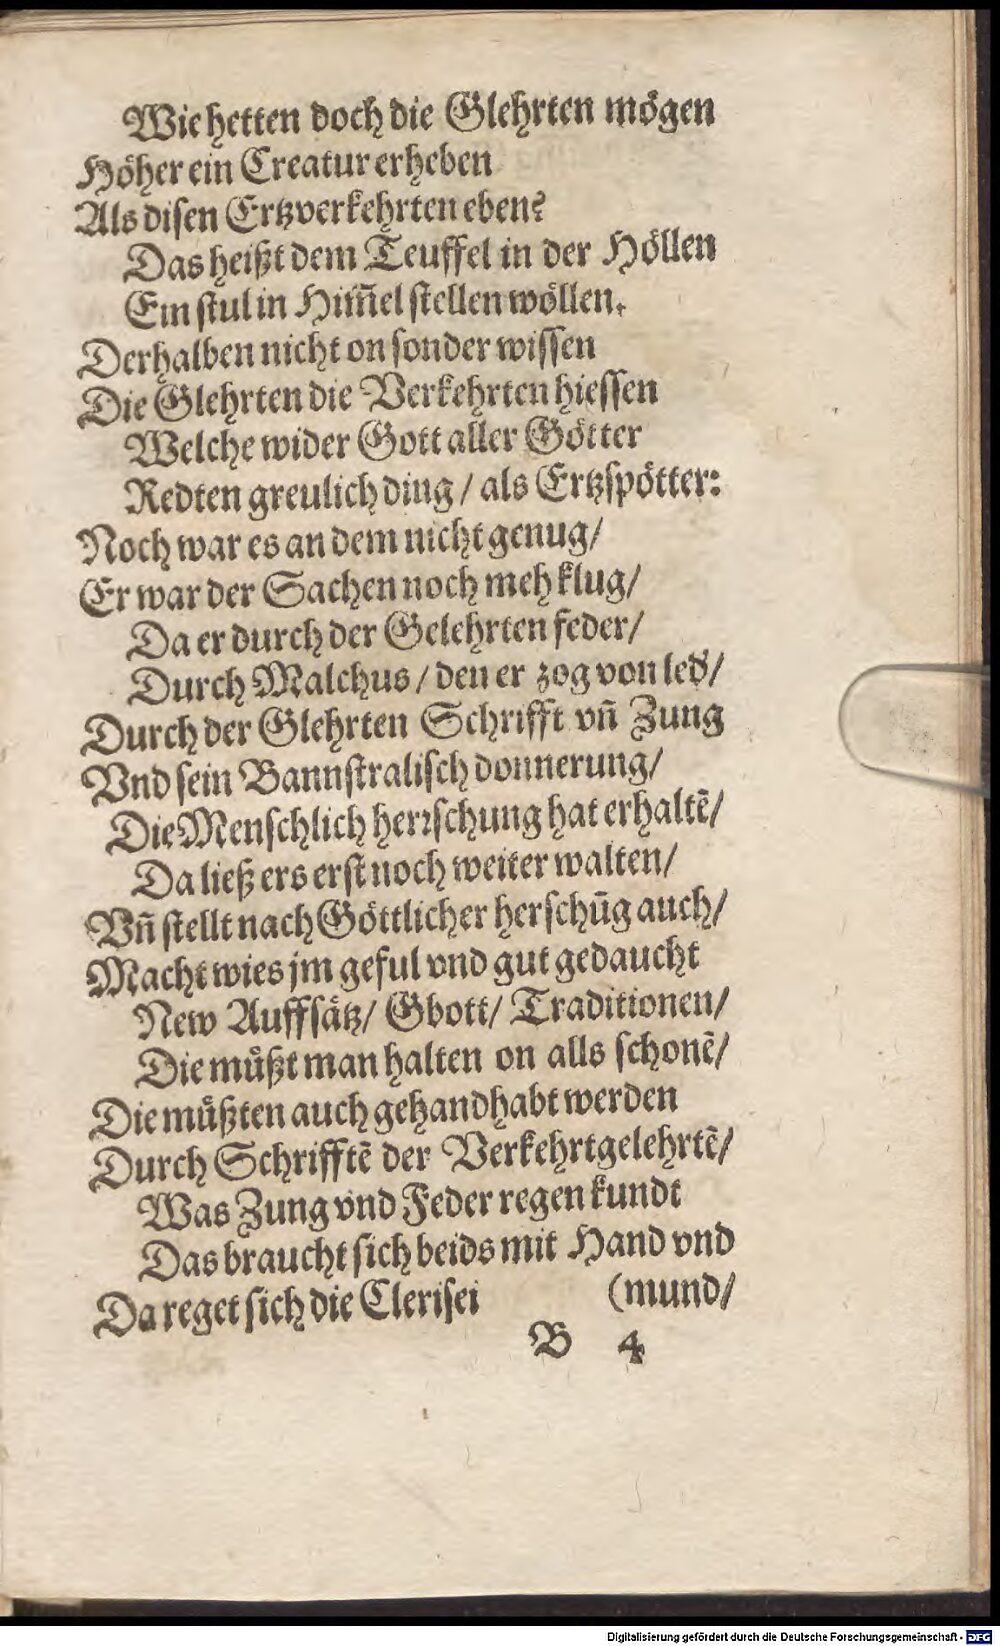 Wie hetten doch die Glehrten mögen
Höher ein Creatur erheben
Als disen Ertzverkehrten eben?
Das heißt dem Teuffel in der Höllen
Ein stul in Him̃el stellen wöllen.
Derhalben nicht on sonder wissen
Die Glehrten die Verkehrten hiessen
Welche wider Gott aller Götter
Redten greulich ding / als Ertzspötter:
Noch war es an dem nicht genug/
Er war der Sachen noch meh klug/
Da er durch der Gelehrten feder/
Durch Malchus / den er zog von led'/
Durch der Glehrten Schrifft vñ Zung
Vnd sein Bannstralisch donnerung/
Die Menschlich herrschung hat erhaltẽ/
Da ließ ers erst noch weiter walten/
Vñ stellt nach Göttlicher herschũg auch/
Macht wies jm geful vnd gut gedaucht
New Auffsätz/ Gbott/ Traditionen/
Die müßt man halten on alls schonẽ/
Die müßten auch gehandhabt werden
Durch Schrifftẽ der Verkehrtgelehrtẽ/
Was Zung vnd Feder regen kundt
Das braucht sich beids mit Hand vnd
Da reget sich die Clerisei (mund/
B 4
Digitalisierung gefördert durch die Deutsche Forschungsgemeinschaft - DFG